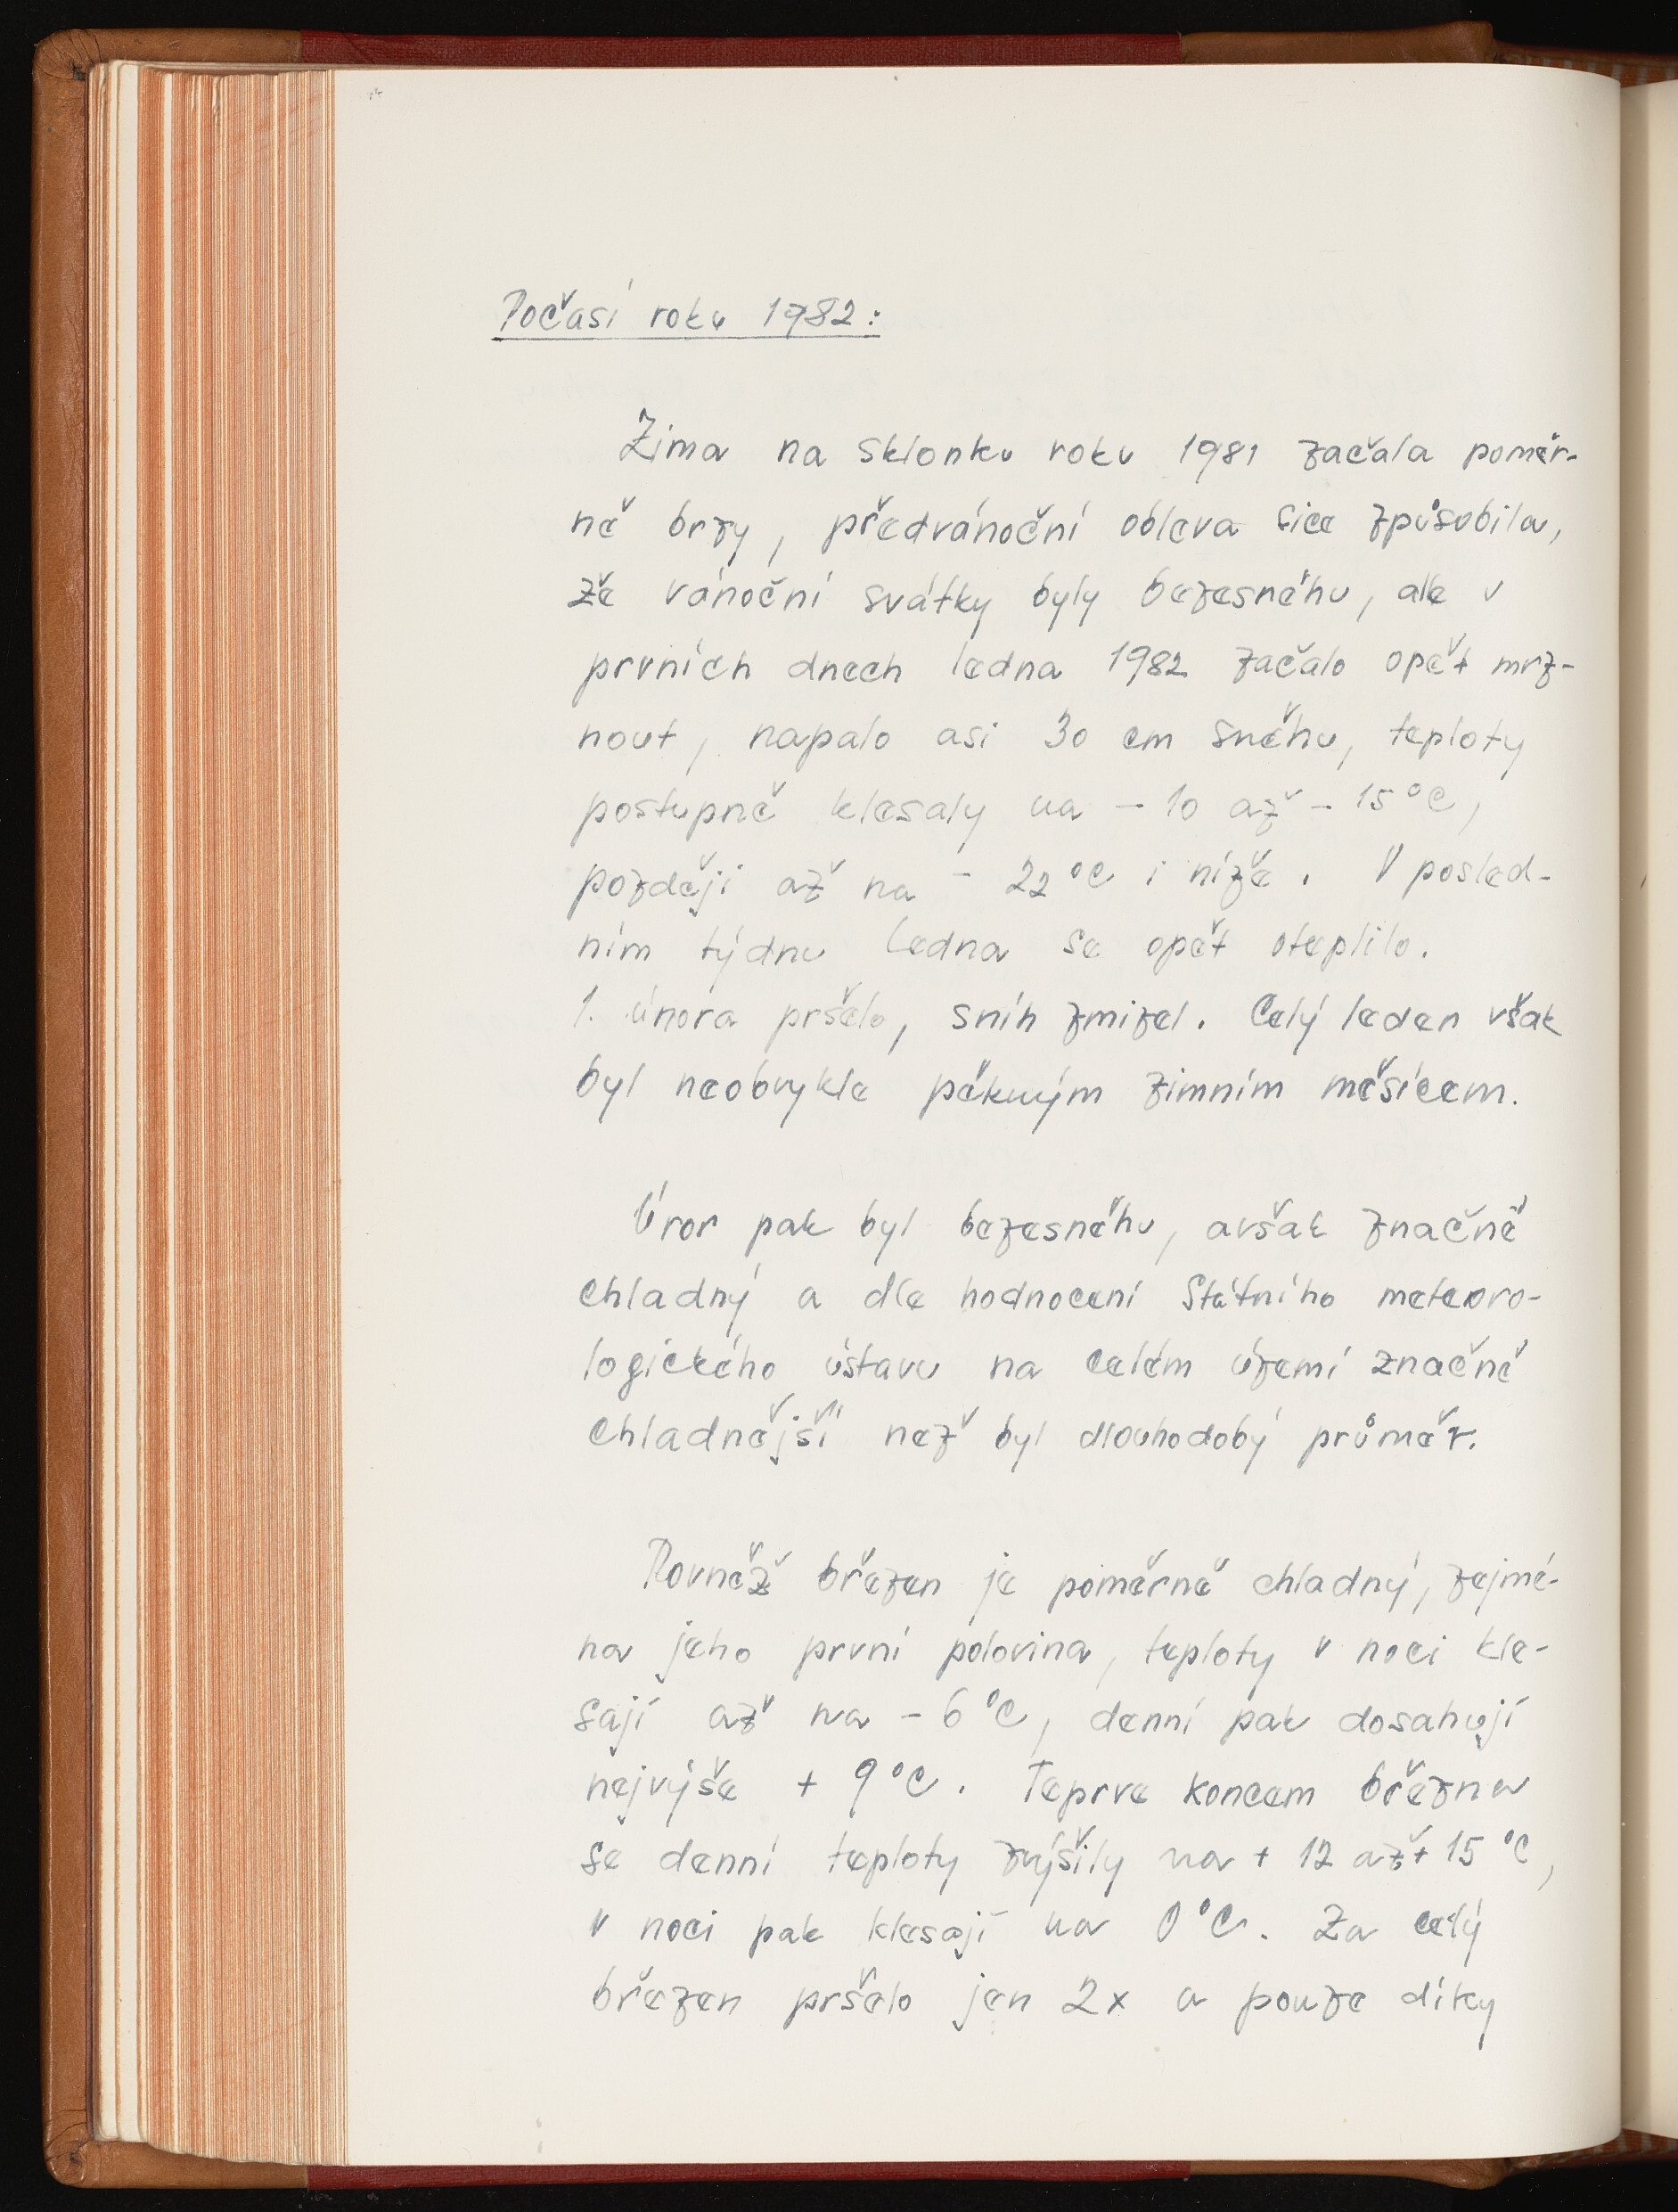 Počasí roku 1982:
Zima na sklonku roku 1981 začala poměr-
ně brzy, předvánoční obleva sice způsobila,
že vánoční svátky byly bezesněhu, ale v
prvních dnech ledna 1982 začalo opět mrz-
nout, napalo asi 30 cm sněhu, teploty
postupně klesaly na - 10 až - 15 °C,
později až na - 22 °C i níže. V posled-
ním týdnu ledna se opět oteplilo.
1. února pršelo, sníh zmizel. Celý leden však
byl neobvykle pěkným zimním měsícem.
Únor pak byl bezesněhu, avšak značně
chladný a dle hodnocení Státního meteoro-
logického ústavu na celém území značně
chladnější než byl dlouhodobý průměr.
Rovněž březen je poměrně chladný, zejmé-
na jeho první polovina, teploty v noci kle-
sají až na - 6 °C, denní pak dosahují
nejvýše + 9 °C. Teprve koncem března
se denní teploty zvýšily na + 12 až + 15 °C,
v noci pak klesají na 0 °C. Za celý
březen pršelo jen 2x a pouze díky